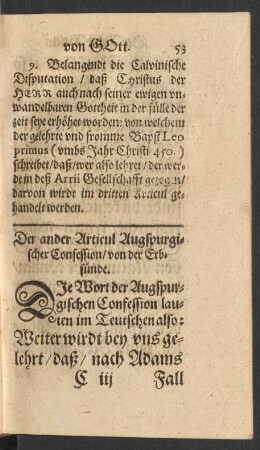 von GOtt. 53
9. Belangendt die Calvinische
Disputation / daß Christus der
HERR auch nach seiner ewigen vn
wandelbaren Gottheit in der fülle der
zeit seye erhöhet worden: von welchem
der gelehrte vnd fromme Bapst Leo
primus (vmbs Jahr Christi 450.)
schreibet / daß / wer also lehret / der wer-
de in deß Arrii Gesellschafft gezogen /
darvon wirdt im dritten Articul ge-
handelt werden.
Der ander Articul Augspurgi-
scher Confession / von der Erb-
sünde.
DJe Wort der Augspur-
gischen Confession lau-
ten im Teutschen also:
Weiter wirdt bey vns ge-
lehrt / daß / nach Adams
C iij Fall